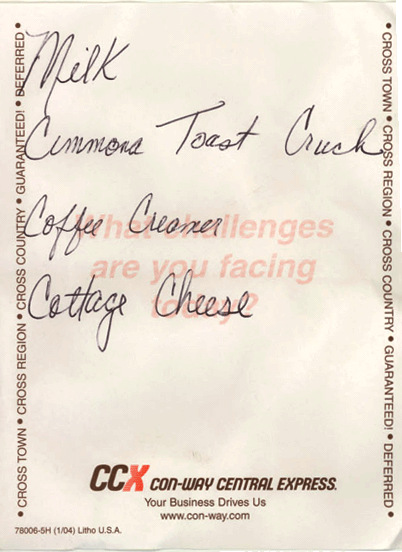 Milk
Cimmona Toast Cruch
Coffee Creamer
Cottage Cheese
What challenges
are you facing
today?
DEFERRED • CROSS TOWN • CROSS REGION • CROSS COUNTRY • GUARANTEED! • DEFERRED •
• CROSS TOWN • CROSS REGION • CROSS COUNTRY • GUARANTEED! • DEFERRED •
CCX CON-WAY CENTRAL EXPRESS.
Your Business Drives Us
www.con-way.com
78006-5H (1/04) Litho U.S.A.